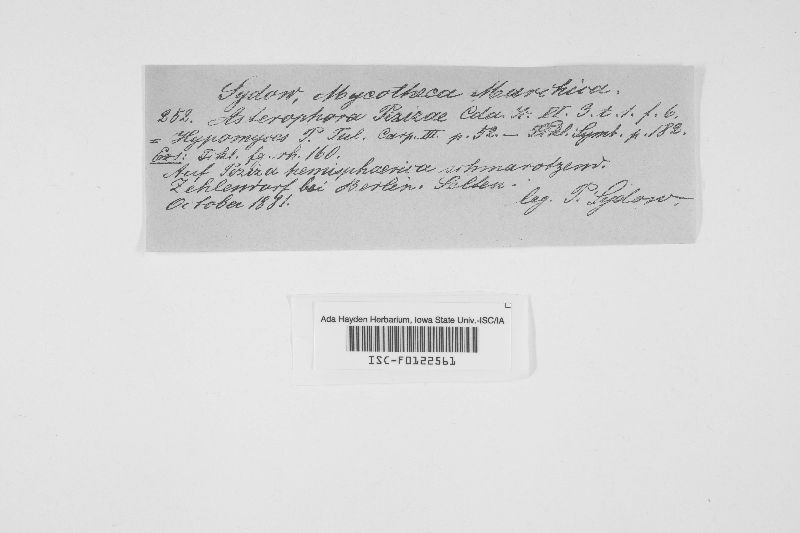 Sydow, Mycotheca Marchica.
252. Asterophora Pezizae Cda Ic. IV. 3. t. 1. f. 6.
= Hypomyces P. Tul. Carp. III. p. 52. — Fckl. Symb. p. 182.
Exs: Fckl. fg. rh. 160.
Auf Peziza hemisphaerica schmarotzend.
Zehlendorf bei Berlin. Selten.
October 1881. leg. P. Sydow.
Ada Hayden Herbarium, Iowa State Univ.-ISC/IA
ISC-F0122561